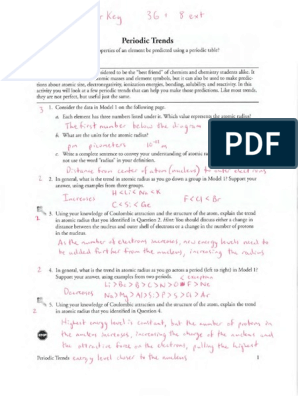 Key 36 + 8 ext
Periodic Trends
operties of an element be predicted using a periodic table?
dered to be the "best friend" of chemists and chemistry students alike. It
atomic masses and element symbols, but it can also be used to make predic-
tions about atomic size, electronegativity, ionization energies, bonding, solubility, and reactivity. In this
activity you will look at a few periodic trends that can help you make those predictions. Like most trends,
they are not perfect, but useful just the same.
3 1. Consider the data in Model 1 on the following page.
a. Each element has three numbers listed under it. Which value represents the atomic radius?
The first number below the diagram
b. What are the units for the atomic radius?
pm picometers 10⁻¹² m
c. Write a complete sentence to convey your understanding of atomic radius.
not use the word "radius" in your definition.
Distance from center of atom (nucleus) to outer electrons
2. In general, what is the trend in atomic radius as you go down a group in Model 1? Support your
answer, using examples from three groups.
H < Li < Na < K
F < Cl < Br
C < Si < Ge
3. Using your knowledge of Coulombic attraction and the structure of the atom, explain the trend
in atomic radius that you identified in Question 2. Hint: You should discuss either a change in
distance between the nucleus and outer shell of electrons or a change in the number of protons
in the nucleus.
As the number of electrons increases, new energy levels need to
be added further from the nucleus, increasing the radius
2 4. In general, what is the trend in atomic radius as you go across a period (left to right) in Model 1?
Support your answer, using examples from two periods.
Decreases Li > Be > B > C > N > O > F > Ne
Na > Mg > Al > Si > P > S > Cl > Ar
5. Using your knowledge of Coulombic attraction and the structure of the atom, explain the trend
in atomic radius that you identified in Question 4.
Highest energy level is constant, but the number of protons in
the nucleus increases, increasing the charge of the nucleus and
the attractive force on the electrons, pulling the highest
energy level closer to the nucleus
Periodic Trends 1
PDF
STOP